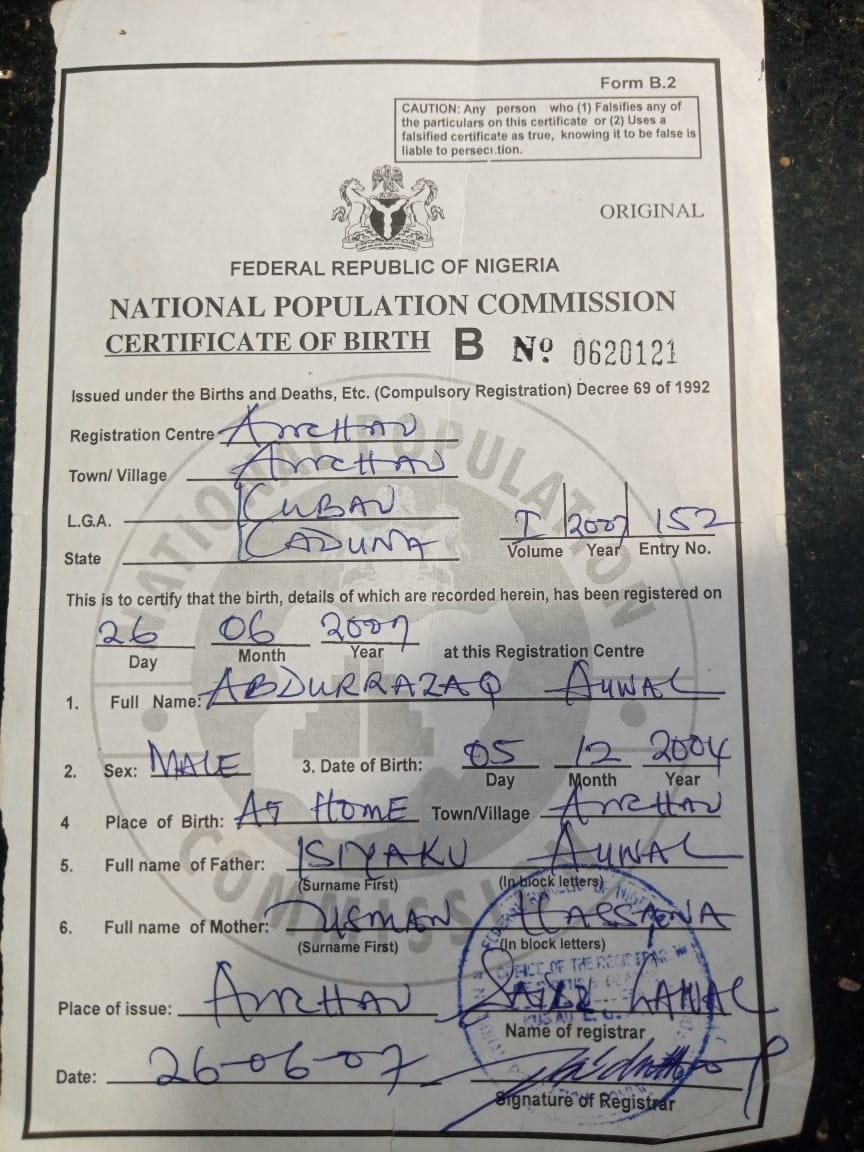 Form B.2
CAUTION: Any person who (1) Falsifies any of
the particulars on this certificate or (2) Uses a
falsified certificate as true, knowing it to be false is
liable to persecution.
ORIGINAL
FEDERAL REPUBLIC OF NIGERIA
NATIONAL POPULATION COMMISSION
CERTIFICATE OF BIRTH B Nº 0620121
Issued under the Births and Deaths, Etc. (Compulsory Registration) Decree 69 of 1992
Registration Centre ANCHAU
Town/ Village ANCHAU
L.G.A. KUBAU
State KADUNA
I 2007 152
Volume Year Entry No.
This is to certify that the birth, details of which are recorded herein, has been registered on
26 06 2007
Day Month Year at this Registration Centre
1. Full Name: ABDURRAZAQ AUWAL
2. Sex: MALE 3. Date of Birth: 05 12 2004
Day Month Year
4 Place of Birth: AT HOME Town/Village ANCHAU
5. Full name of Father: ISIYAKU AUWAL
(Surname First) (In block letters)
6. Full name of Mother: USMAN HASSANA
(Surname First) (In block letters)
Place of issue: ANCHAU LAWAL
Name of registrar
Date: 26-06-07
Signature of Registrar
NATIONAL POPULATION COMMISSION
OFFICE OF THE REGISTRAR